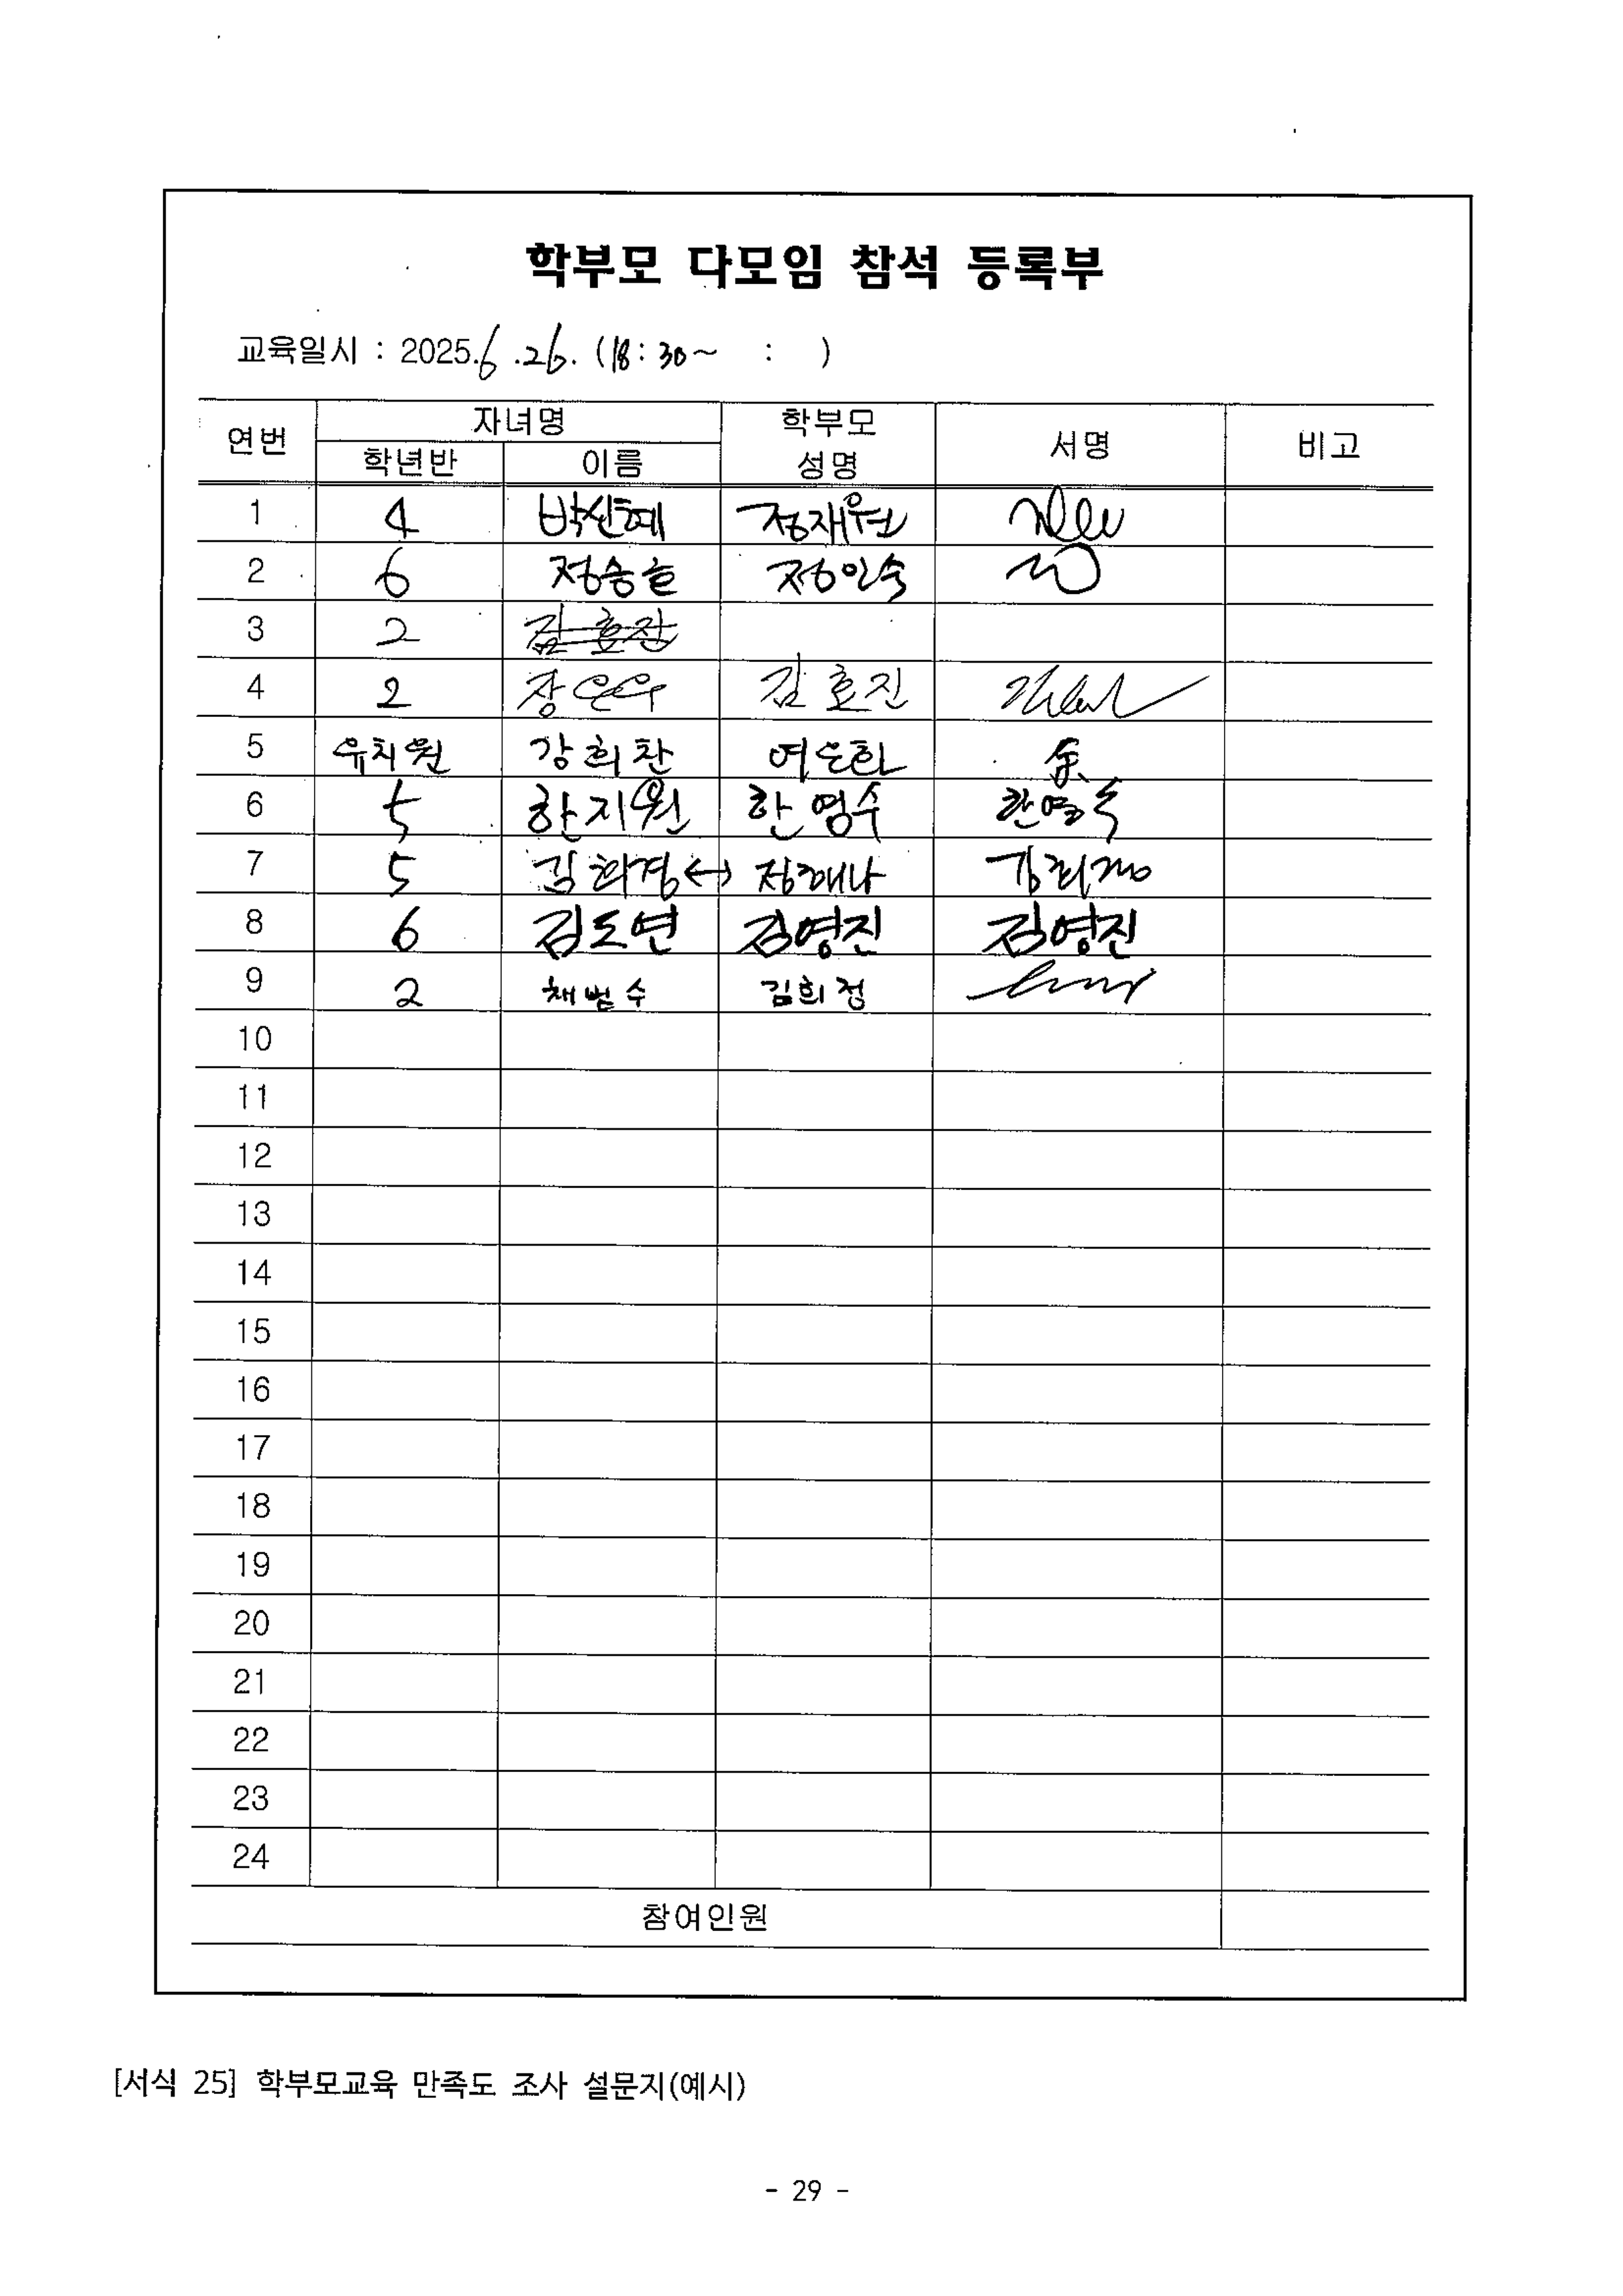 학부모 다모임 참석 등록부
교육일시 : 2025.6.26. (18:30~ : )
연번 자녀명 학부모 성명 서명 비고
학년반 이름
1 4 박신혜 정재원
2 6 정승늘 정인숙
3 2 김효진
4 2 장은우 김효진
5 유치원 강희찬 여은화 余
6 5 한지원 한영수 한영수
7 5 김희경 ↔ 정해나 김희경
8 6 김도연 김영진 김영진
9 2 채범수 김희정
10
11
12
13
14
15
16
17
18
19
20
21
22
23
24
참여인원
[서식 25] 학부모교육 만족도 조사 설문지(예시)
- 29 -